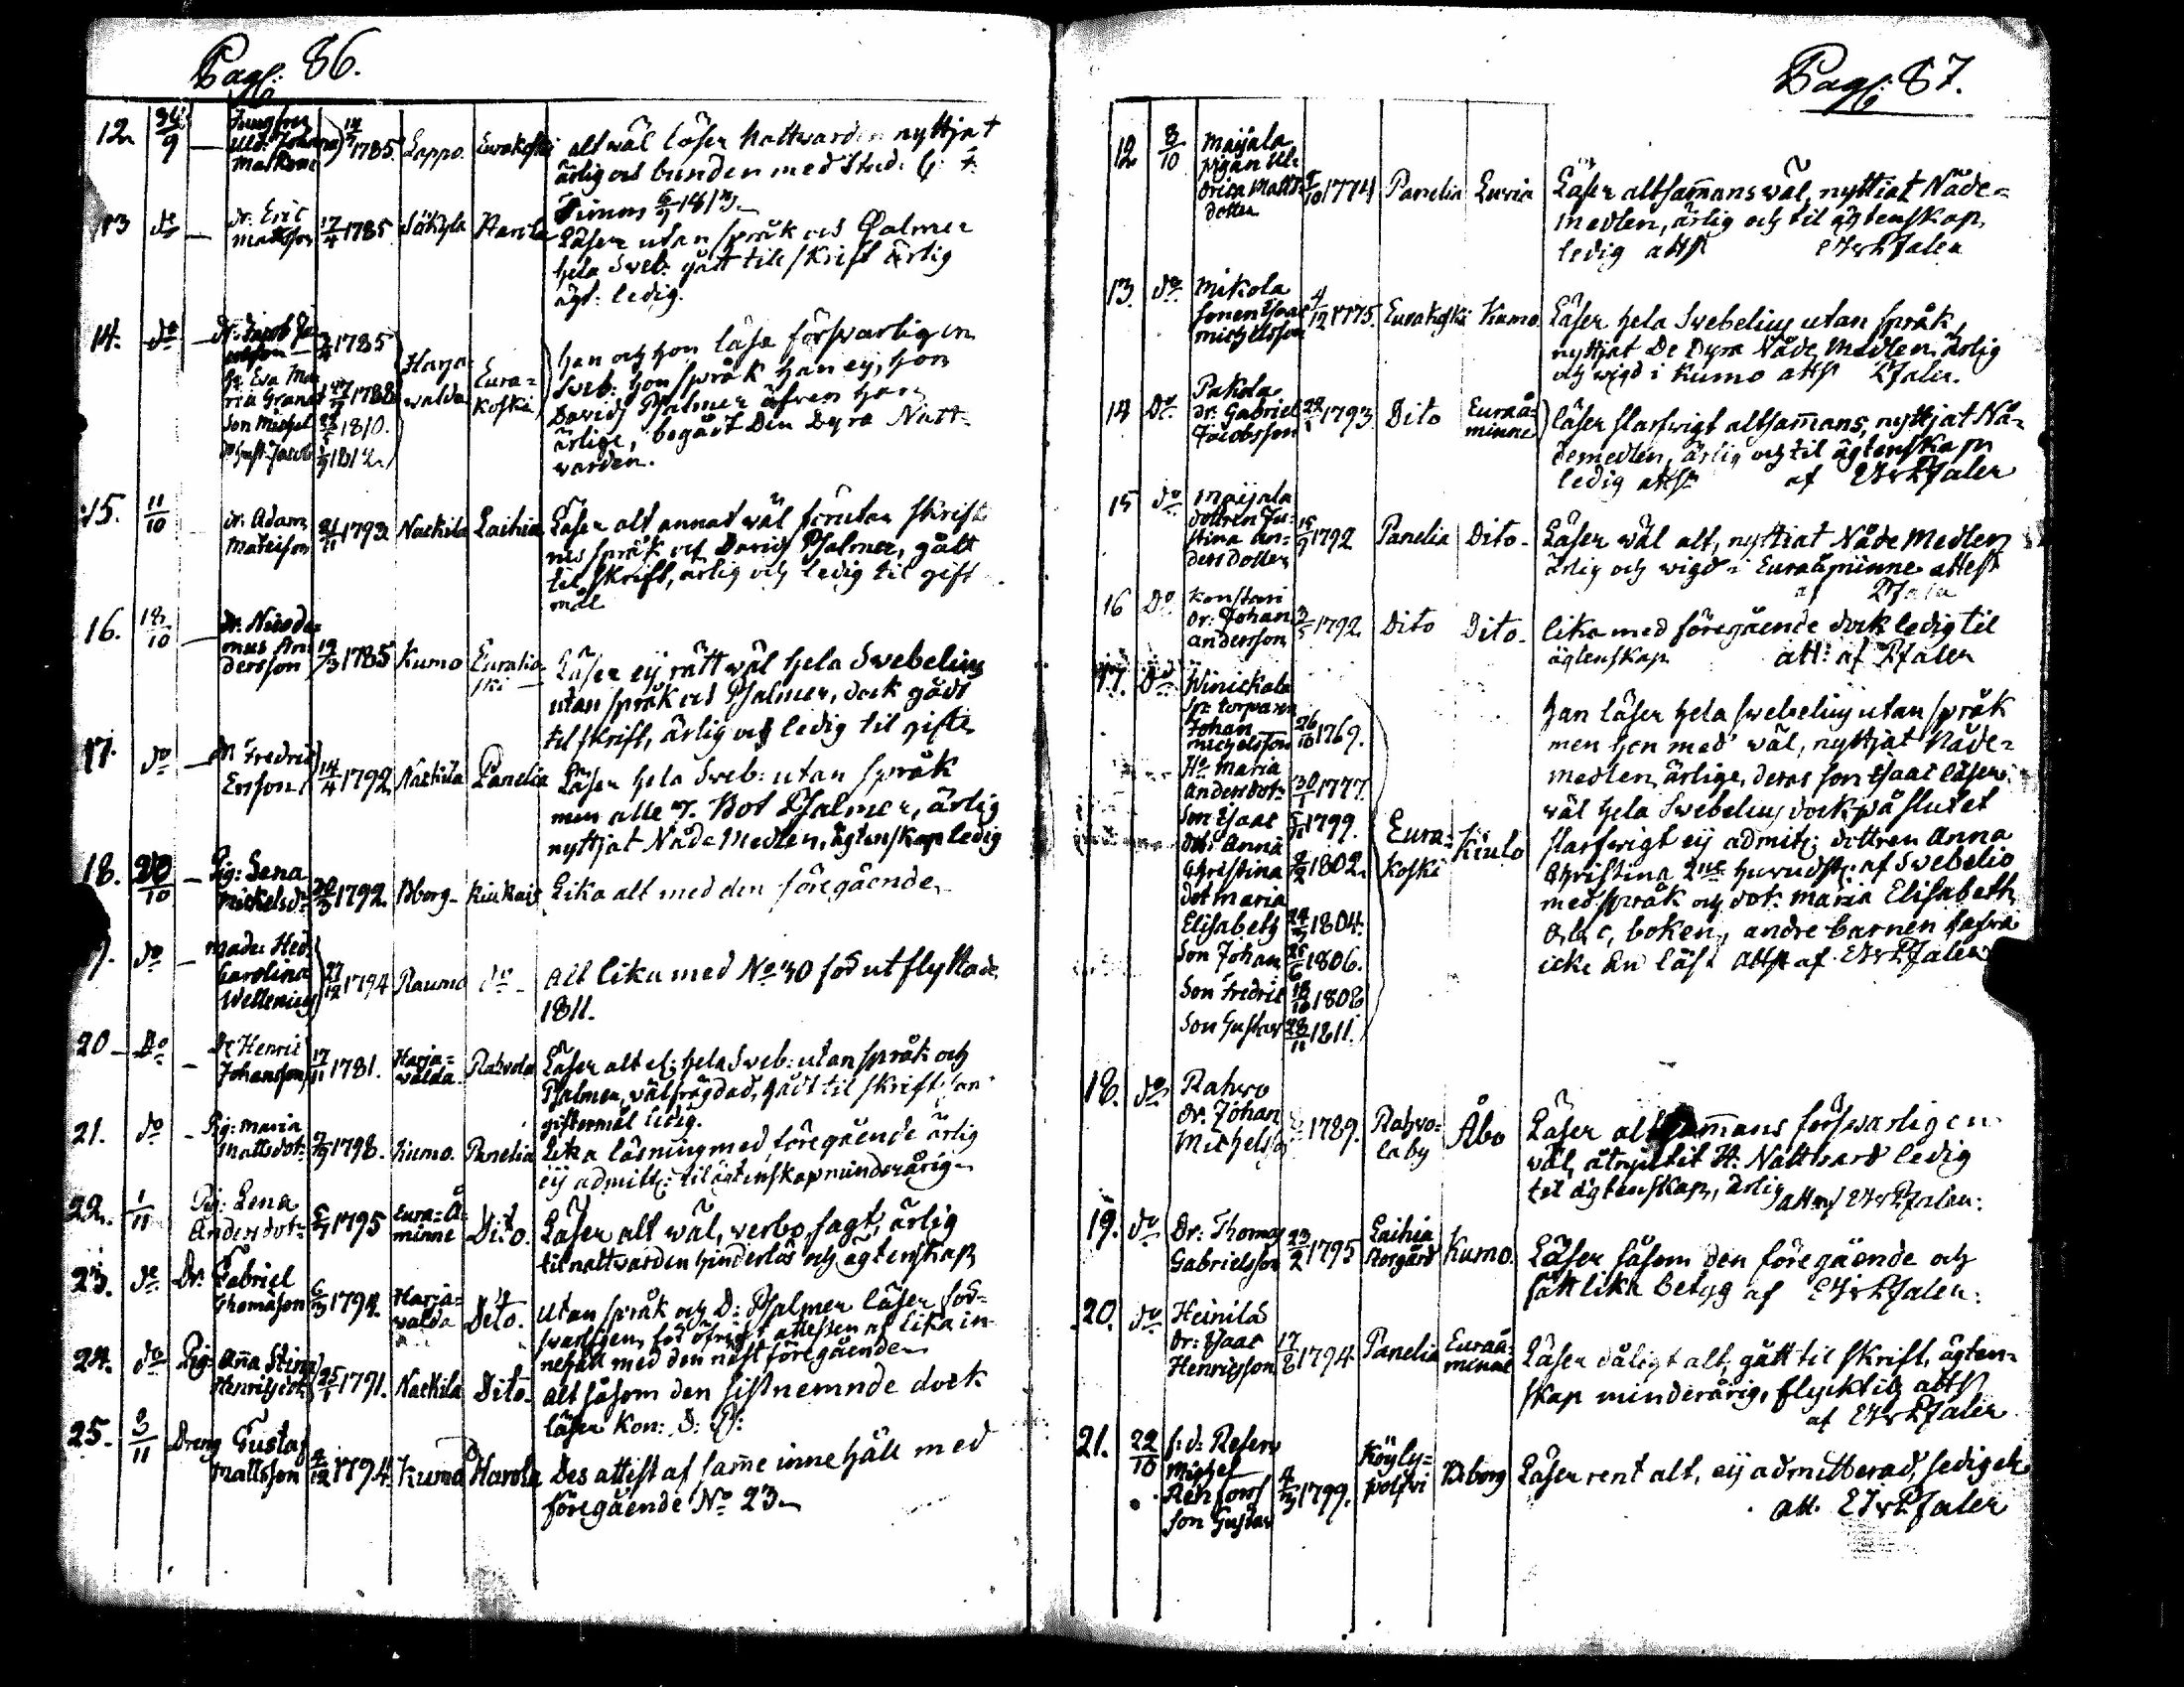 Pag: 86.
12 9 Johan 1785. Lappo. altwäl läser Nattwarden nyttjat
ärlig och bunden med Stud: G: F:
Simons 1813.
13 do dr. Eric Matsson 17/4 1785 Säkyla Harola
Läser utan språk och Psalmer
hela Sveb: gått till skrift ärlig
ägt: ledig.
14. do dr: Jacob 1785
Hu: Eva Maria 1788
Son Michel 1810.
1812
Harjawalda Eurakoski
han och hon läsa försvarligen
Sveb: hon språk han ej, hon
Davids Psalmer äfven han
ärlige, begådt Den Dyra Nattvarden.
15. 11/10 dr. Adam Matsson 21/11 1793 Nackila Laihia
Läser alt annat wäl förutan skriftenes
språk och Davids Psalmer, gått
til skrift, ärlig och ledig til giftmål
16. 18/10 dr. Nicodemus Andersson 19/3 1785 Kumo
Läser ej rätt wäl hela Swebelius
utan språk och Psalmer, dock gådt
til skrift, ärlig och ledig til gifte
17. do dr Fredric Ersson 14/4 1792 Nackila Panelia
Läser hela Sveb: utan språk
men alle 7. Bot Psalmer, ärlig
nyttjat Nåde Medlen, ägtenskap ledig
18. 20/10 Pig: Lena Mickelsdr 20/3 1792. Kiukais
Lika alt med den föregående
do Made: Hed: Carolina Wellenius 27/12 1794 Raumo do
Alt lika med No 30 som utflyttade
1811.
20 Do Dr Henric Johansson 17/11 1781. Harjawalda. Rahvola
Läser alt el: hela Sveb: utan språk och
Psalmer, wälfrägdad, gådt til skrift
giftermål ledig.
21. do Pig: Maria Mattsdot: 1798. Kumo. Panelia
Lika läsning med föregående ärlig
eij admitt: til ägtenskap minderårig
22. 1/11 Pig: Lena Andersdot: 1795 Eura-Åminne Dito.
Läser alt wäl, verbo sagt, ärlig
til nattvarden hinderlös och ägtenskap
23. do Dr: Gabriel Thomasson 6/3 1794. Harjawalda Dito.
Utan språk och D: Psalmer läser försvarligen,
för öfrigt attesten af lika innehåll
med den näst föregående
24. do Pig: Anna Stina Henricsdotr 25/1 1791. Nackila Dito.
alt såsom den sistnemnde dock
läser kon: D: Ps:
25. 3/11 Dreng Gustaf Mattsson 4/12 1794. Kumo Harola
Des attest af samme innehåll med
föregående No 23
Pag: 87.
12 8/10 Maijala pigan Ulrica Matts dotter 1774 Panelia Luvia
Läser altsammans wäl, nyttiat Nådemedlen,
ärlig och til ägtenskap
ledig attst EIvPfaler
13. do Mikola sonen Isaac Michelsson 4/12 1775. Eurakoski Kumo.
Läser hela Swebelius utan språk,
nyttjat De Dyra Nåde Medlen, ärlig
och wigd i Kumo attst Pfaler.
14 Do Pakola dr. Gabriel Jacobsson 1793 Dito Euraåminne
läser slarfwigt altsammans, nyttjat Nådemedlen,
ärlig och til ägtenskap
ledig attst af EIvPfaler
15 do Maijala dottren Justina Andersdotter 1792 Panelia Dito
Läser wäl alt, nyttiat Nåde Medlen
ärlig och wigd i Euraåminne attest
af Pfaler
16 Do Konstari dr: Johan Andersson 1792. Dito Dito.
lika med föregående dock ledig til
ägtenskap att: af Pfaler
17. Do Winickala torparen Johan Michelsson 26/10 1769.
Hu Maria Andersdotr 30/1 1777.
Son Isaac 1799.
Dot: Anna Christina 1802.
dot Maria Elisabeth 1804.
Son Johan 1806.
Son Fredric 18/10 1808
Son Gustav 28/11 1811.
Eurakoski Kiulo
han läser hela Swebelius utan språk
men hon med wäl, nyttjat Nådemedlen,
ärlige, deras son Isaac läser
wäl hela Swebelius dock på slutet
slarfwigt eij admit: dottren Anna
Christina 2ne huvudst: af Swebelio
med språk och dot: Maria Elisabeth
a, b, c, boken, andre barnen hafva
icke än läst attst af EIvPfaler
18. do Rahvo dr. Johan Michelss: 1789. Rahvolaby Åbo
Läser altsammans försvarligen
wäl, åtnjutit H. Nattvard ledig
til ägtenskap, ärlig att af EIvPfaler:
19. do Dr: Thomas Gabrielsson 23/2 1795 Laihia Storgård Kumo.
Läser såsom den föregående och
fått lika betyg af EIvPfaler:
20. do Heinilä dr: Isaac Henricsson 17/8 1794. Panelia Euraåminne
Läser dåligt alt, gått til skrift, ägtenskap
minderårig, flycktig attst
af EIvPfaler
21. 22/10 f:d: Reserv Michel Renfors son Gustav 4/3 1799. Köylypolfvi
Läser rent alt, eij admitterad, sedig etc
att. EIvPfaler